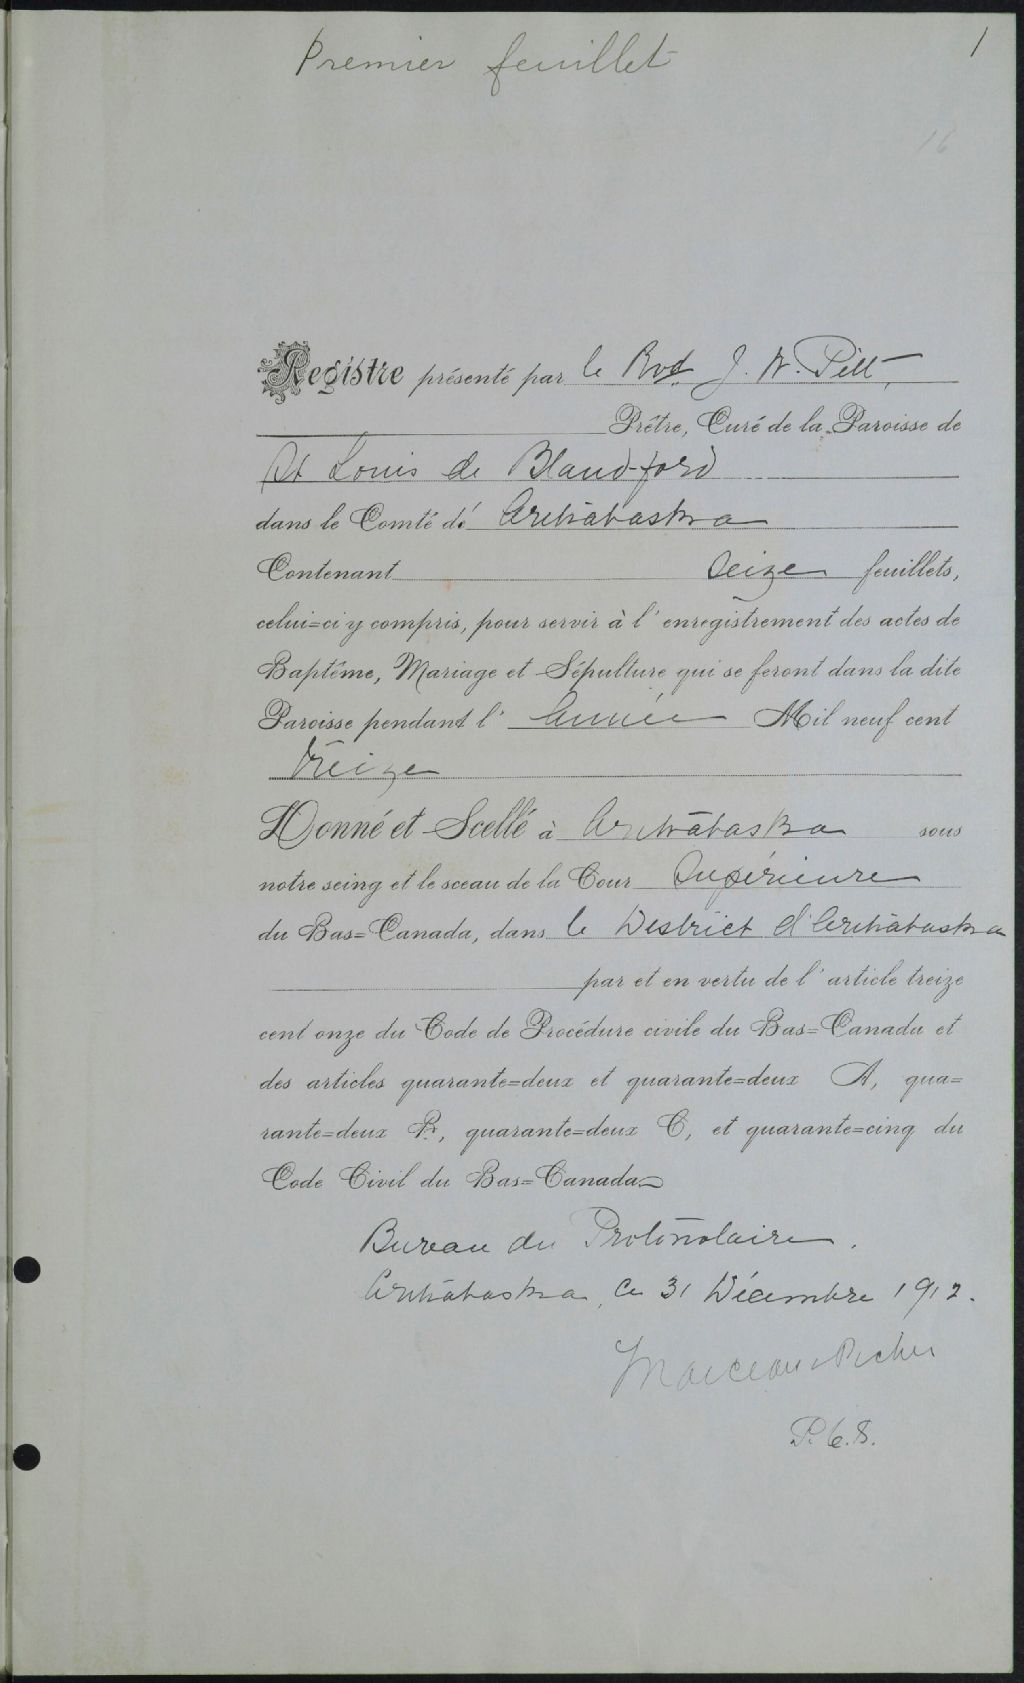 Premier feuillet
1
16
Registre présenté par le Rvd. J. N. Pett,
Prêtre, Curé de la Paroisse de
St Louis de Blandford
dans le Comté de Arthabaska
Contenant Seize feuillets,
celui=ci y compris, pour servir à l'enregistrement des actes de
Baptême, Mariage et Sépulture qui se feront dans la dite
Paroisse pendant l' Année Mil neuf cent
Treize
Donné et Scellé à Arthabaska sous
notre seing et le sceau de la Cour Supérieure
du Bas=Canada, dans le District d'Arthabaska
par et en vertu de l'article treize
cent onze du Code de Procédure civile du Bas=Canada et
des articles quarante=deux et quarante=deux A, qua=
rante=deux B, quarante=deux C, et quarante=cinq du
Code Civil du Bas=Canada
Bureau du Protonotaire.
Arthabaska, ce 31 Décembre 1912.
P. C. S.